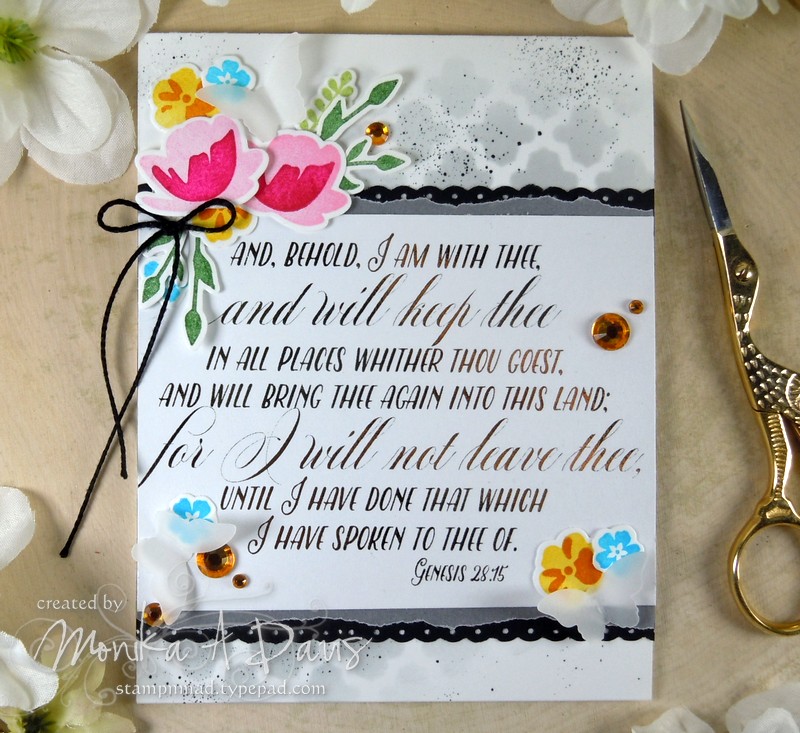 AND, BEHOLD, I AM WITH THEE,
and will keep thee
IN ALL PLACES WHITHER THOU GOEST,
AND WILL BRING THEE AGAIN INTO THIS LAND;
for I will not leave thee,
UNTIL I HAVE DONE THAT WHICH
I HAVE SPOKEN TO THEE OF.
GENESIS 28:15
created by
Monika A Davis
stampinmad.typepad.com